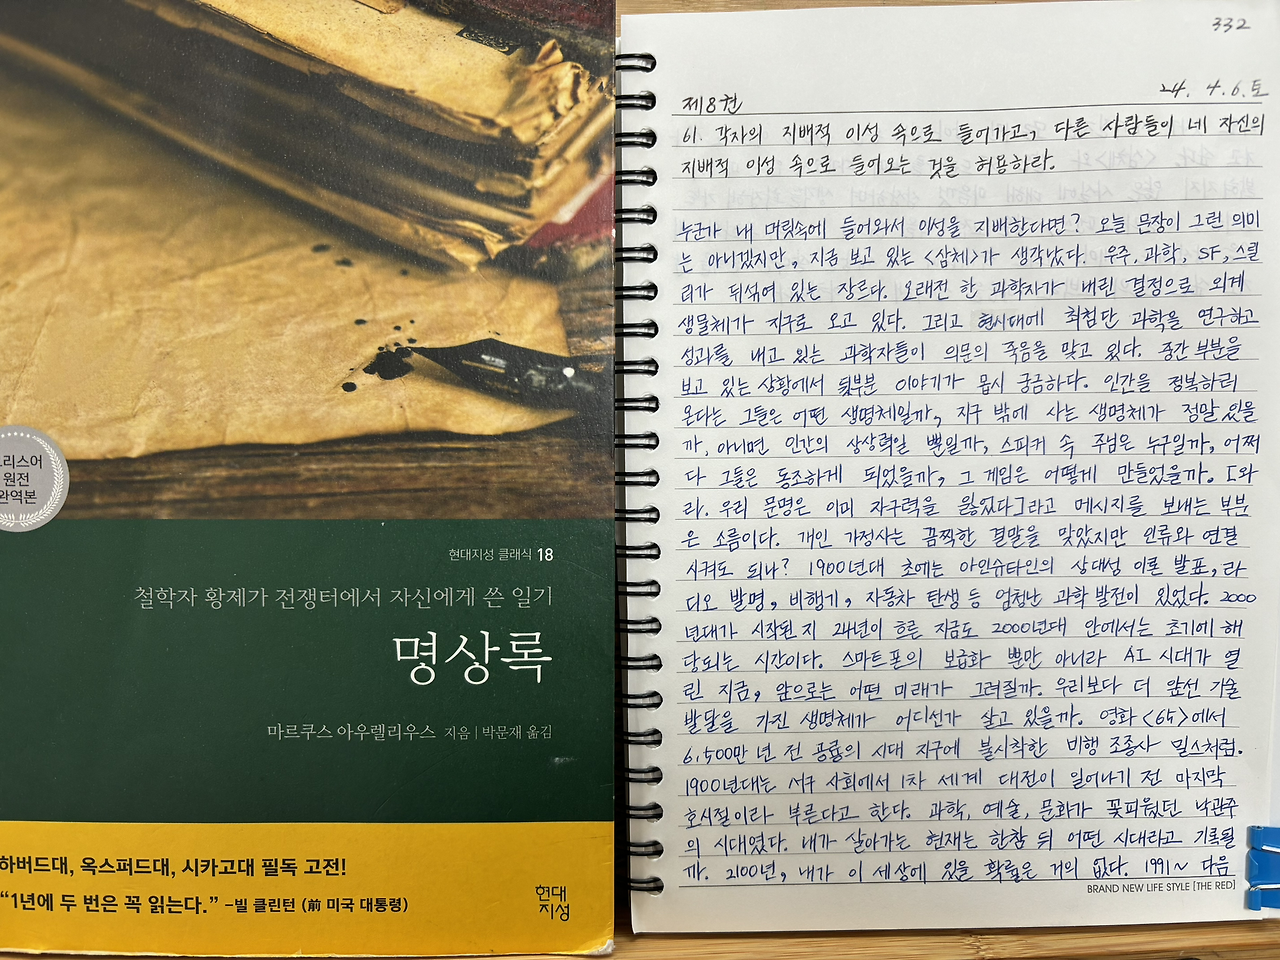 그리스어
원전
완역본
현대지성 클래식 18
철학자 황제가 전쟁터에서 자신에게 쓴 일기
명상록
마르쿠스 아우렐리우스 지음 | 박문재 옮김
하버드대, 옥스퍼드대, 시카고대 필독 고전!
“1년에 두 번은 꼭 읽는다.” –빌 클린턴 (前 미국 대통령)
현대
지성
332
24. 4. 6. 토
제8권
61. 각자의 지배적 이성 속으로 들어가고, 다른 사람들이 네 자신의
지배적 이성 속으로 들어오는 것을 허용하라.
누군가 내 머릿속에 들어와서 이성을 지배한다면? 오늘 문장이 그런 의미
는 아니겠지만, 지금 보고 있는 <삼체>가 생각났다. 우주, 과학, SF, 스릴
러가 뒤섞여 있는 장르다. 오래전 한 과학자가 내린 결정으로 외계
생물체가 지구로 오고 있다. 그리고 현시대에 최첨단 과학을 연구하고
성과를 내고 있는 과학자들이 의문의 죽음을 맞고 있다. 중간 부분을
보고 있는 상황에서 뒷부분 이야기가 몹시 궁금하다. 인간을 정복하러
온다는 그들은 어떤 생명체일까, 지구 밖에 사는 생명체가 정말 있을
까, 아니면 인간의 상상력일 뿐일까, 스피커 속 주님은 누구일까, 어쩌
다 그들은 동조하게 되었을까, 그 게임은 어떻게 만들었을까. [와
라. 우리 문명은 이미 자구력을 잃었다]라고 메시지를 보내는 부분
은 소름이다. 개인 가정사는 끔찍한 결말을 맞았지만 인류와 연결
시켜도 되나? 1900년대 초에는 아인슈타인의 상대성 이론 발표, 라
디오 발명, 비행기, 자동차 탄생 등 엄청난 과학 발전이 있었다. 2000
년대가 시작된 지 24년이 흐른 지금도 2000년대 안에서는 초기에 해
당되는 시간이다. 스마트폰의 보급화 뿐만 아니라 AI 시대가 열
린 지금, 앞으로는 어떤 미래가 그려질까. 우리보다 더 앞선 기술
발달을 가진 생명체가 어디선가 살고 있을까. 영화 <65>에서
6,500만 년 전 공룡의 시대 지구에 불시착한 비행 조종사 밀스처럼.
1900년대는 서구 사회에서 1차 세계 대전이 일어나기 전 마지막
호시절이라 부른다고 한다. 과학, 예술, 문화가 꽃피웠던 낙관주
의 시대였다. 내가 살아가는 현재는 한참 뒤 어떤 시대라고 기록될
까. 2100년, 내가 이 세상에 있을 확률은 거의 없다. 1991~ 다음
BRAND NEW LIFE STYLE [THE RED]